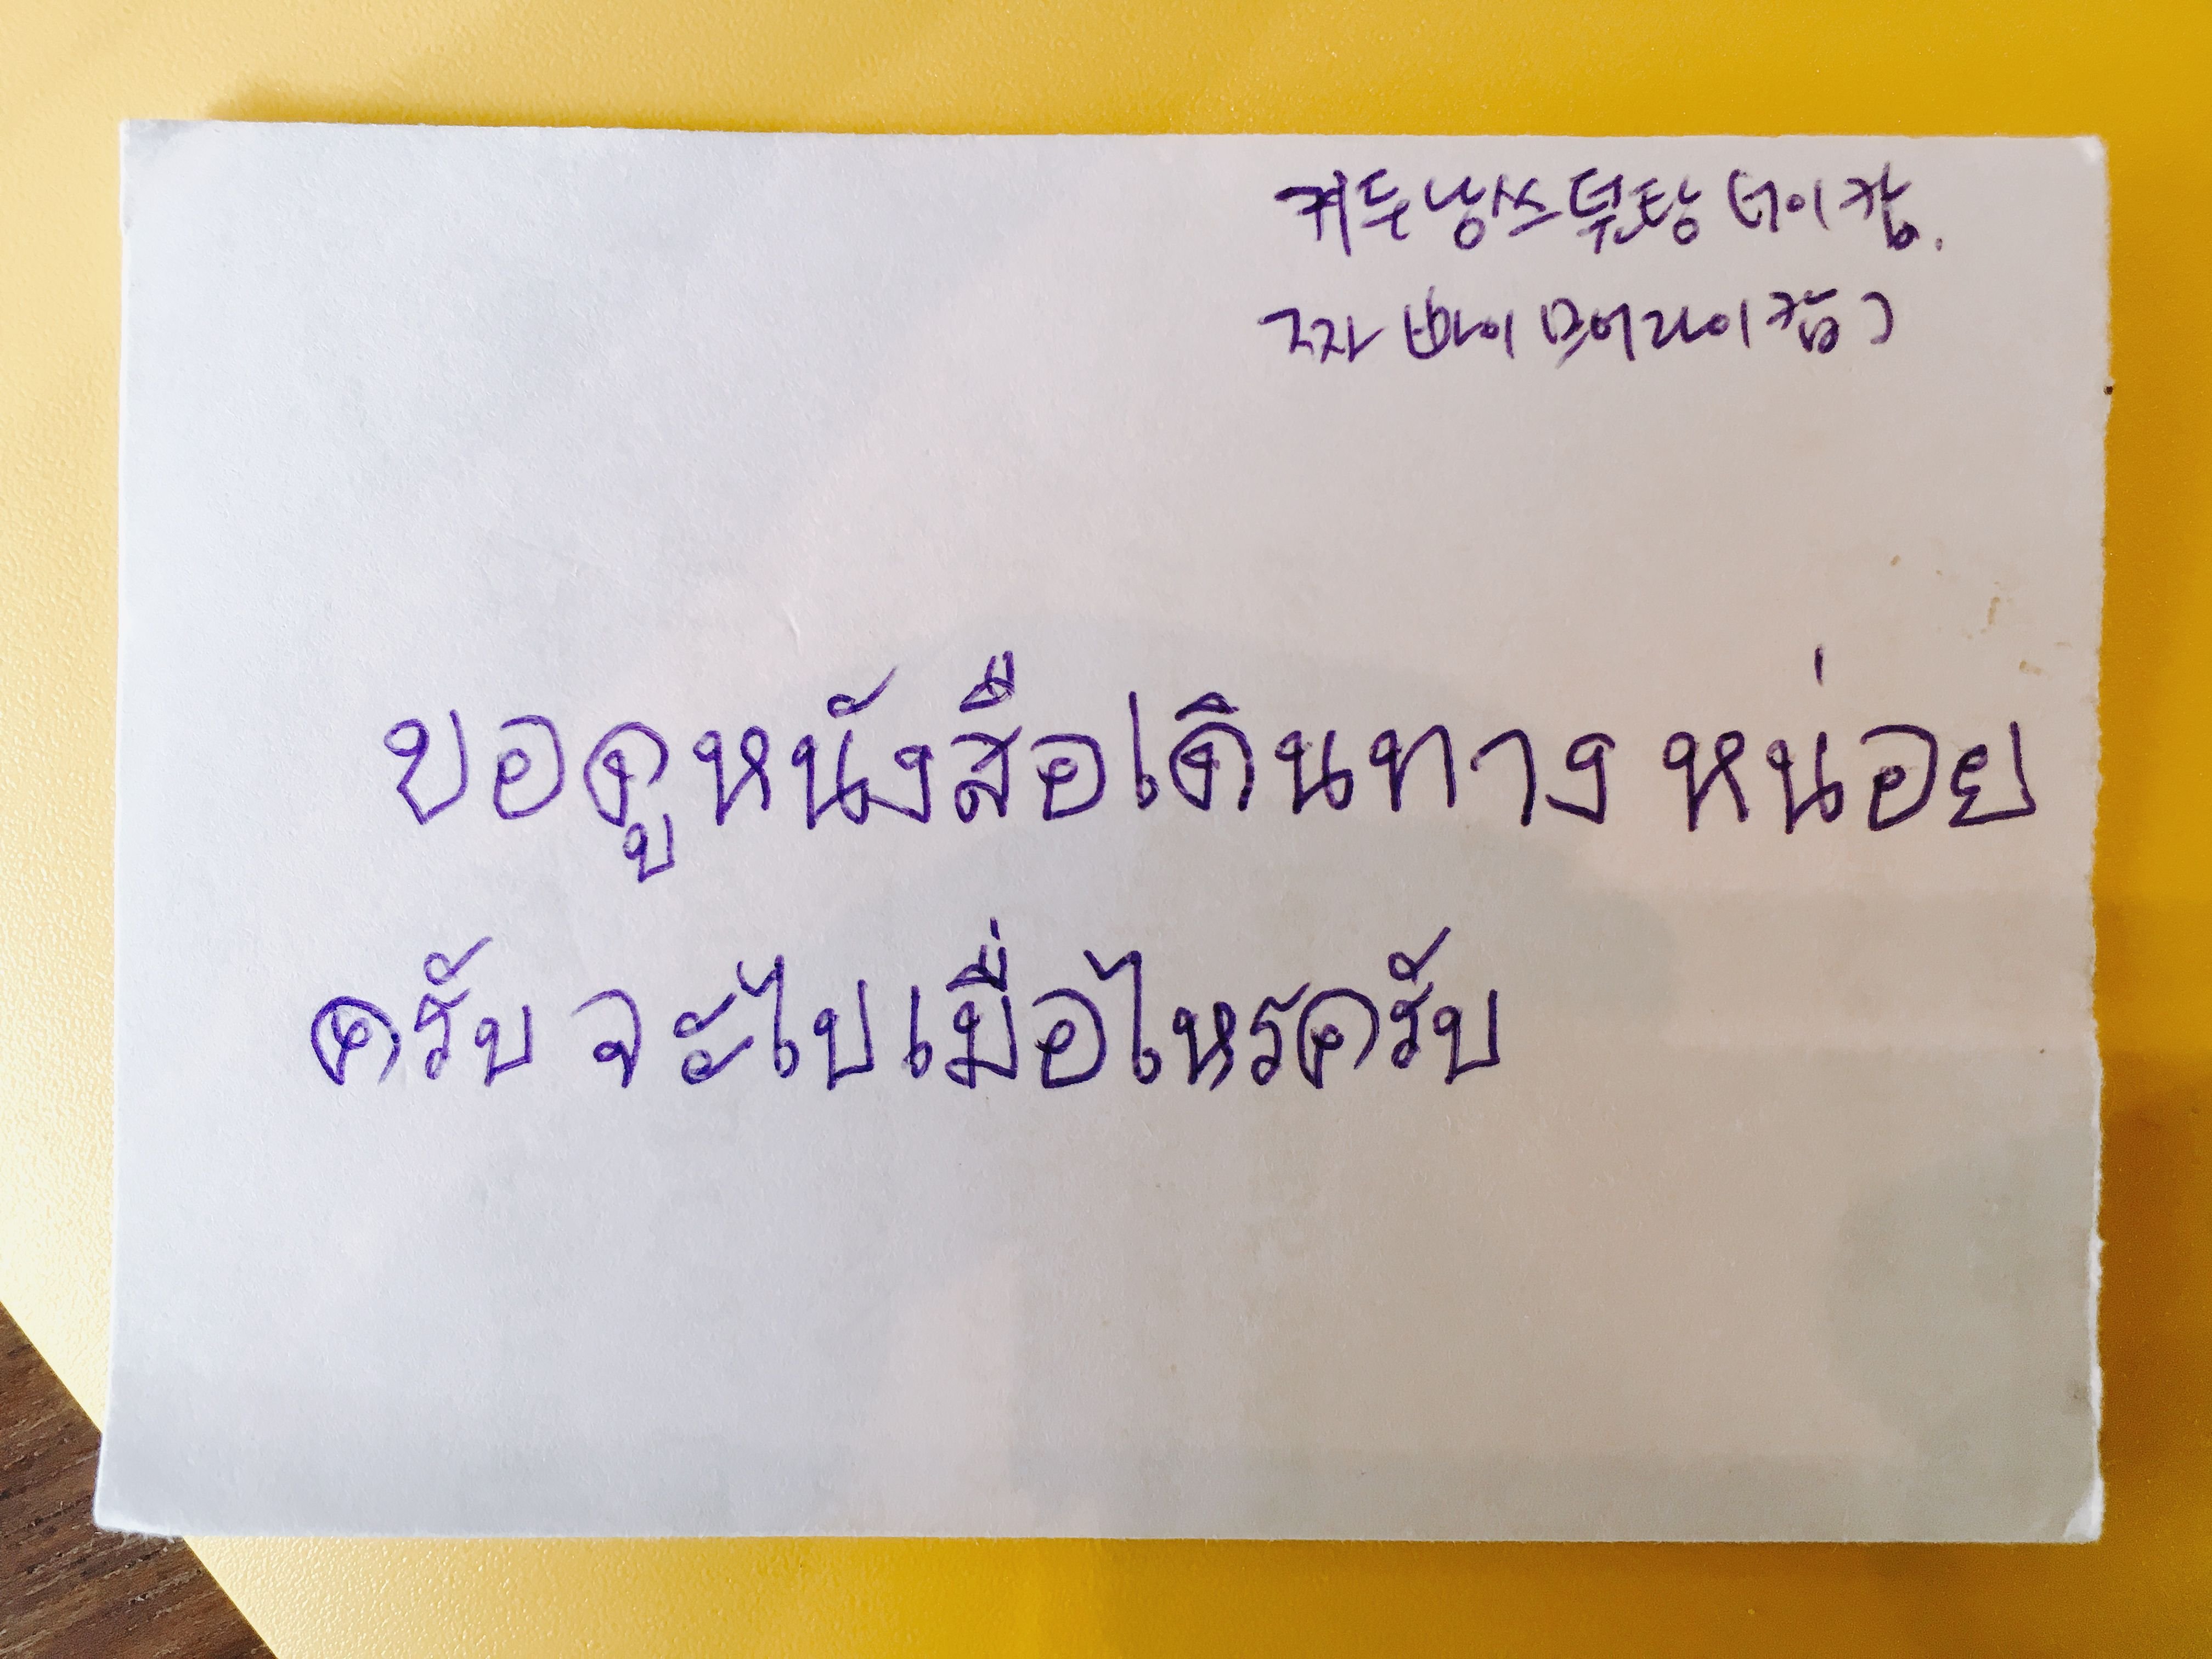 커두낭쓰뒨탕 너이캅.
ㄱ짜 빠이 므어라이캅?
ขอดูหนังสือเดินทาง หน่อย
ครับ จะไปเมื่อไหรครับ